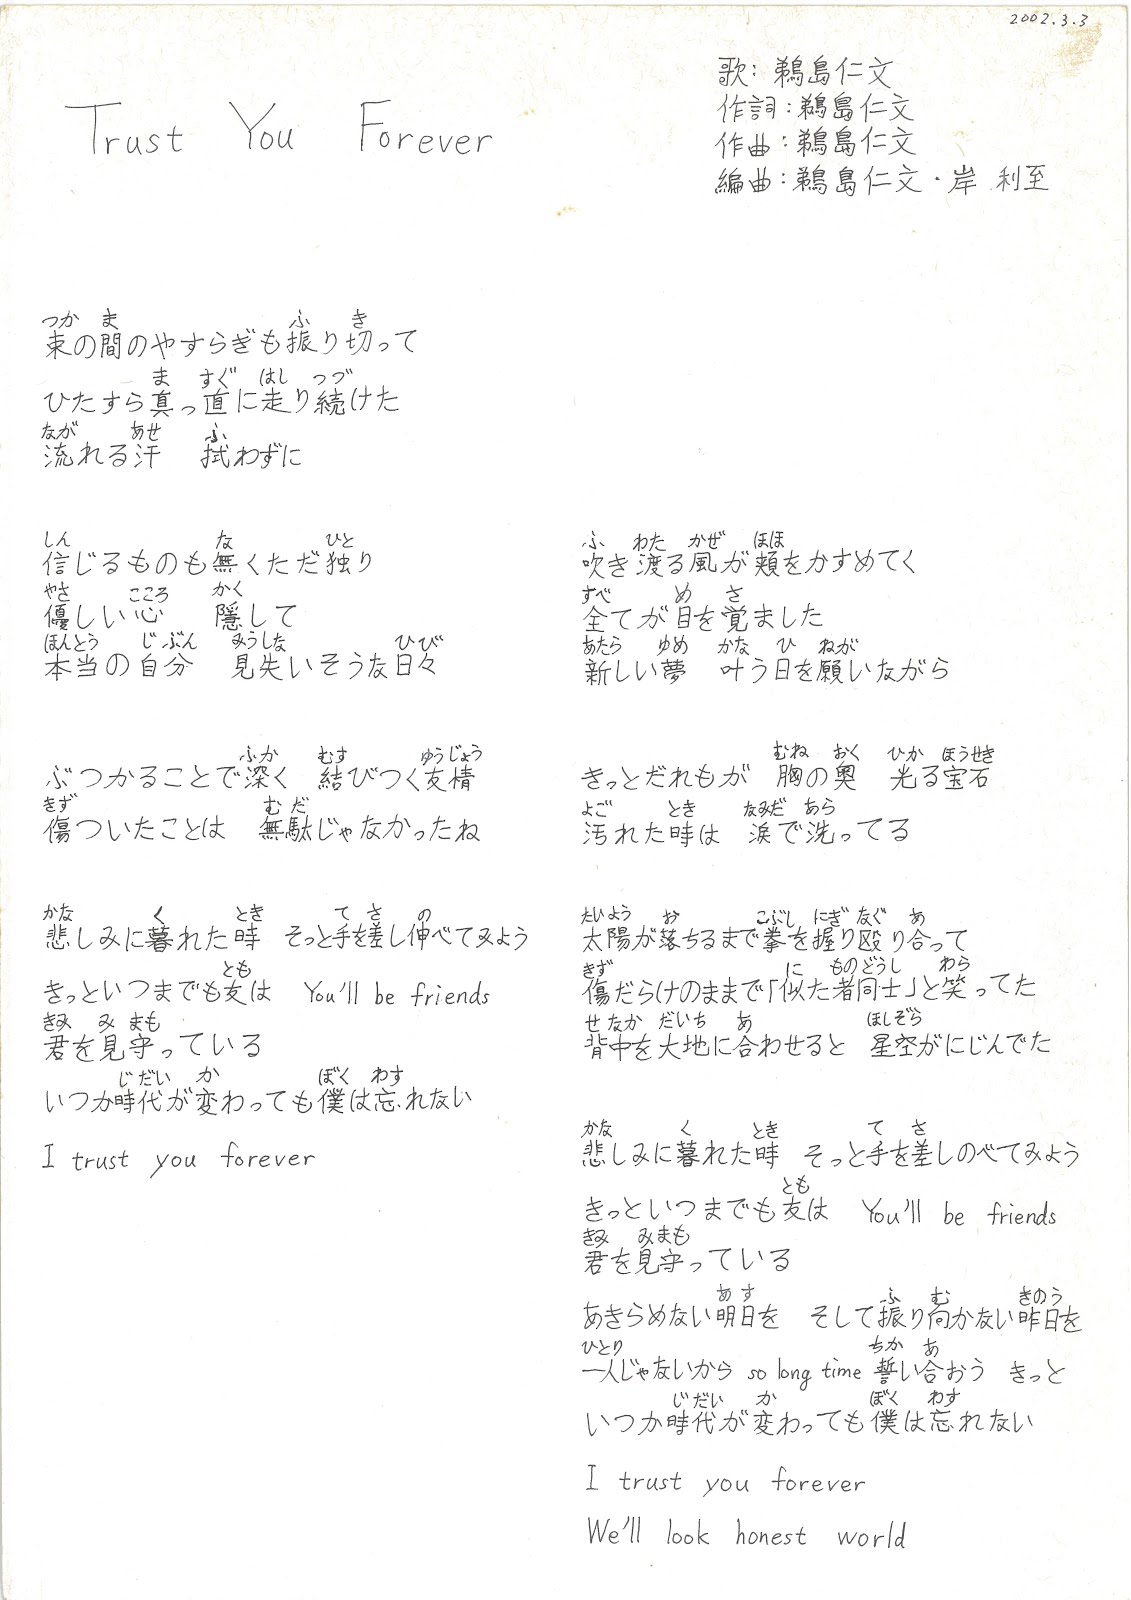 2002.3.3
Trust You Forever
歌：鵜島仁文
作詞：鵜島仁文
作曲：鵜島仁文
編曲：鵜島仁文・岸 利至
つか ま ふ き
束の間のやすらぎも振り切って
ま すぐ はし つづ
ひたすら真っ直に走り続けた
なが あせ ふ
流れる汗 拭わずに
しん な ひと
信じるものも無くただ独り
やさ こころ かく
優しい心 隠して
ほんとう じ ぶん みうしな ひび
本当の自分 見失いそうな日々
ふか むす ゆうじょう
ぶつかることで深く 結びつく友情
きず む だ
傷ついたことは 無駄じゃなかったね
かな く とき て さ の
悲しみに暮れた時 そっと手を差し伸べてみよう
とも
きっといつまでも友は You'll be friends
きみ み まも
君を見守っている
じ だい か ぼく わす
いつか時代が変わっても僕は忘れない
I trust you forever
ふ わた かぜ ほほ
吹き渡る風が頬をかすめてく
すべ め さ
全てが目を覚ました
あたら ゆめ かな ひ ねが
新しい夢 叶う日を願いながら
むね おく ひか ほうせき
きっとだれもが 胸の奥 光る宝石
よご とき なみだ あら
汚れた時は 涙で洗ってる
たいよう お こぶし にぎ なぐ あ
太陽が落ちるまで拳を握り殴り合って
きず に ものどうし わら
傷だらけのままで「似た者同士」と笑ってた
せ なか だいち あ ほしぞら
背中を大地に合わせると 星空がにじんでた
かな く とき て さ
悲しみに暮れた時 そっと手を差しのべてみよう
とも
きっといつまでも友は You'll be friends
きみ みまも
君を見守っている
あ す ふ む きのう
あきらめない明日を そして振り向かない昨日を
ひとり ちか あ
一人じゃないから so long time 誓い合おう きっと
じ だい か ぼく わす
いつか時代が変わっても僕は忘れない
I trust you forever
We'll look honest world